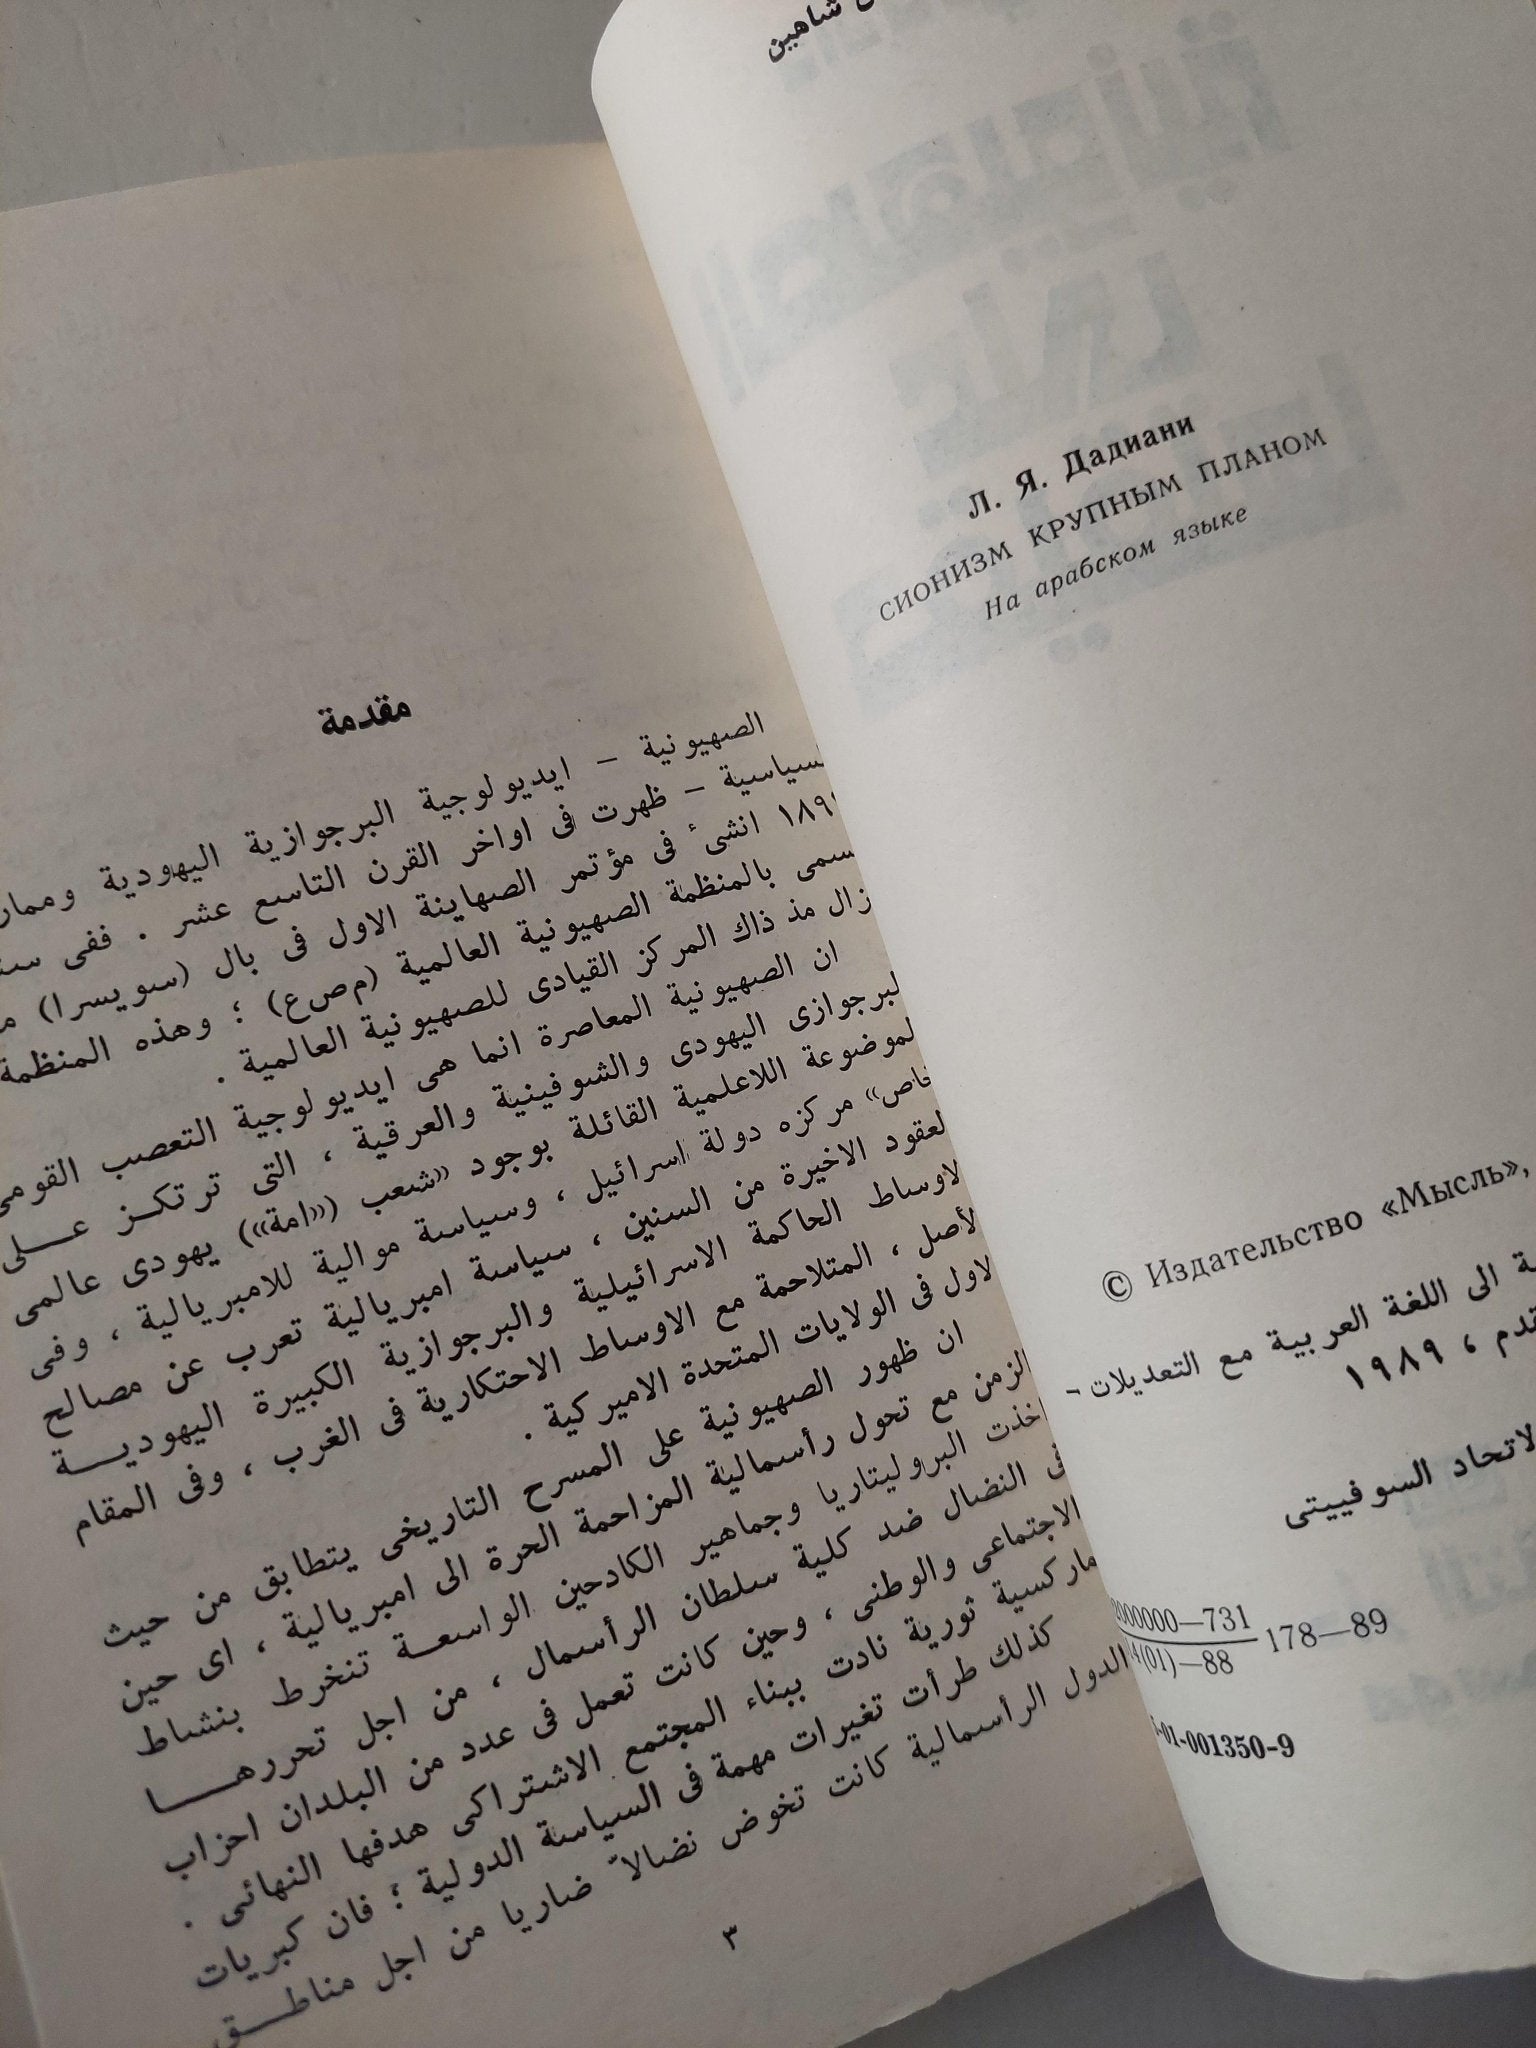 شاهين
Л. Я. Дадиани
СИОНИЗМ КРУПНЫМ ПЛАНОМ
На арабском языке
© Издательство «Мысль»,
الى اللغة العربية مع التعديلات –
١٩٨٩
السوفييتى
000000—731
(01)—88
178—89
01-001350-9
مقدمة
الصهيونية – ايديولوجية البرجوازية اليهودية
– ظهرت فى اواخر القرن التاسع عشر . ففى
انشىء فى مؤتمر الصهاينة الاول فى بال (سويسرا)
بالمنظمة الصهيونية العالمية (م ص ع) ؛ وهذه المنظمة
مذ ذاك المركز القيادى للصهيونية العالمية .
ان الصهيونية المعاصرة انما هى ايديولوجية التعصب
اليهودى والشوفينية والعرقية ، التى ترتكـز عـلـى
اللاعلمية القائلة بوجود «شعب («امة») يهودى عالمى
مركزه دولة اسرائيل ، وسياسة موالية للامبريالية ، وفى
الاخيرة من السنين ، سياسة امبريالية تعرب عن مصالح
الحاكمة الاسرائيلية والبرجوازية الكبيرة اليهوديــة
، المتلاحمة مع الاوساط الاحتكارية فى الغرب ، وفى المقام
فى الولايات المتحدة الاميركية .
ان ظهور الصهيونية على المسرح التاريخى يتطابق من حيث
الزمن مع تحول رأسمالية المزاحمة الحرة الى امبريالية ، اى حين
البروليتاريا وجماهير الكادحين الواسعـة تنخرط بنشاط
النضال ضد كلية سلطان الرأسمال ، من اجل تحررهـــا
الاجتماعى والوطنى ، وحين كانت تعمل فى عدد من البلدان احزاب
ماركسية ثورية نادت ببناء المجتمع الاشتراكى هدفها النهائى .
كذلك طرأت تغيرات مهمة فى السياسة الدولية ؛ فان كبريات
الدول الرأسمالية كانت تخوض نضالاً ضاريا من اجل مناطـق
٣